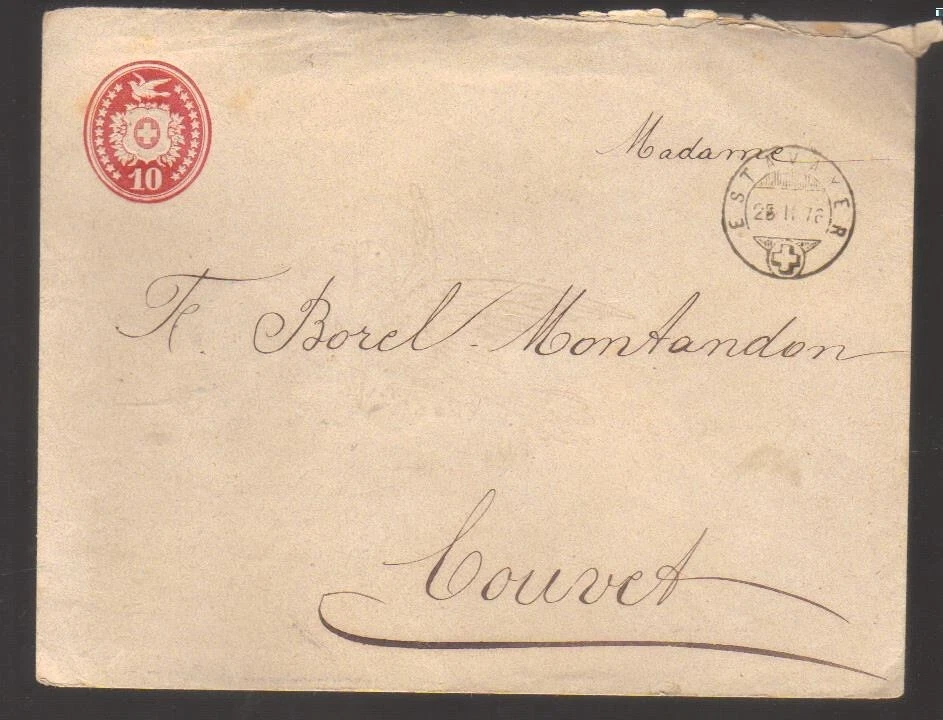 10
Madame
ESTAVAYER
II 76
Borel-Montandon
Couvet